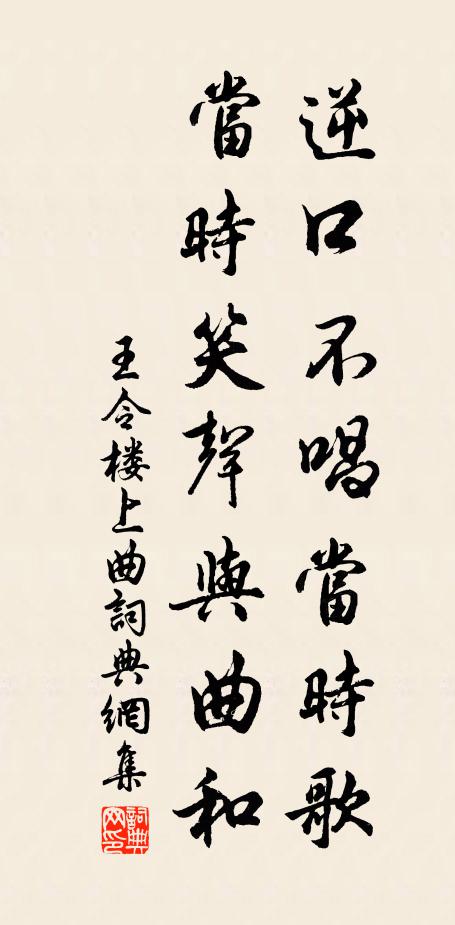 逆口不唱當時歌
當時笑聲與曲和
王令楼上曲詞典網集
詞典网印